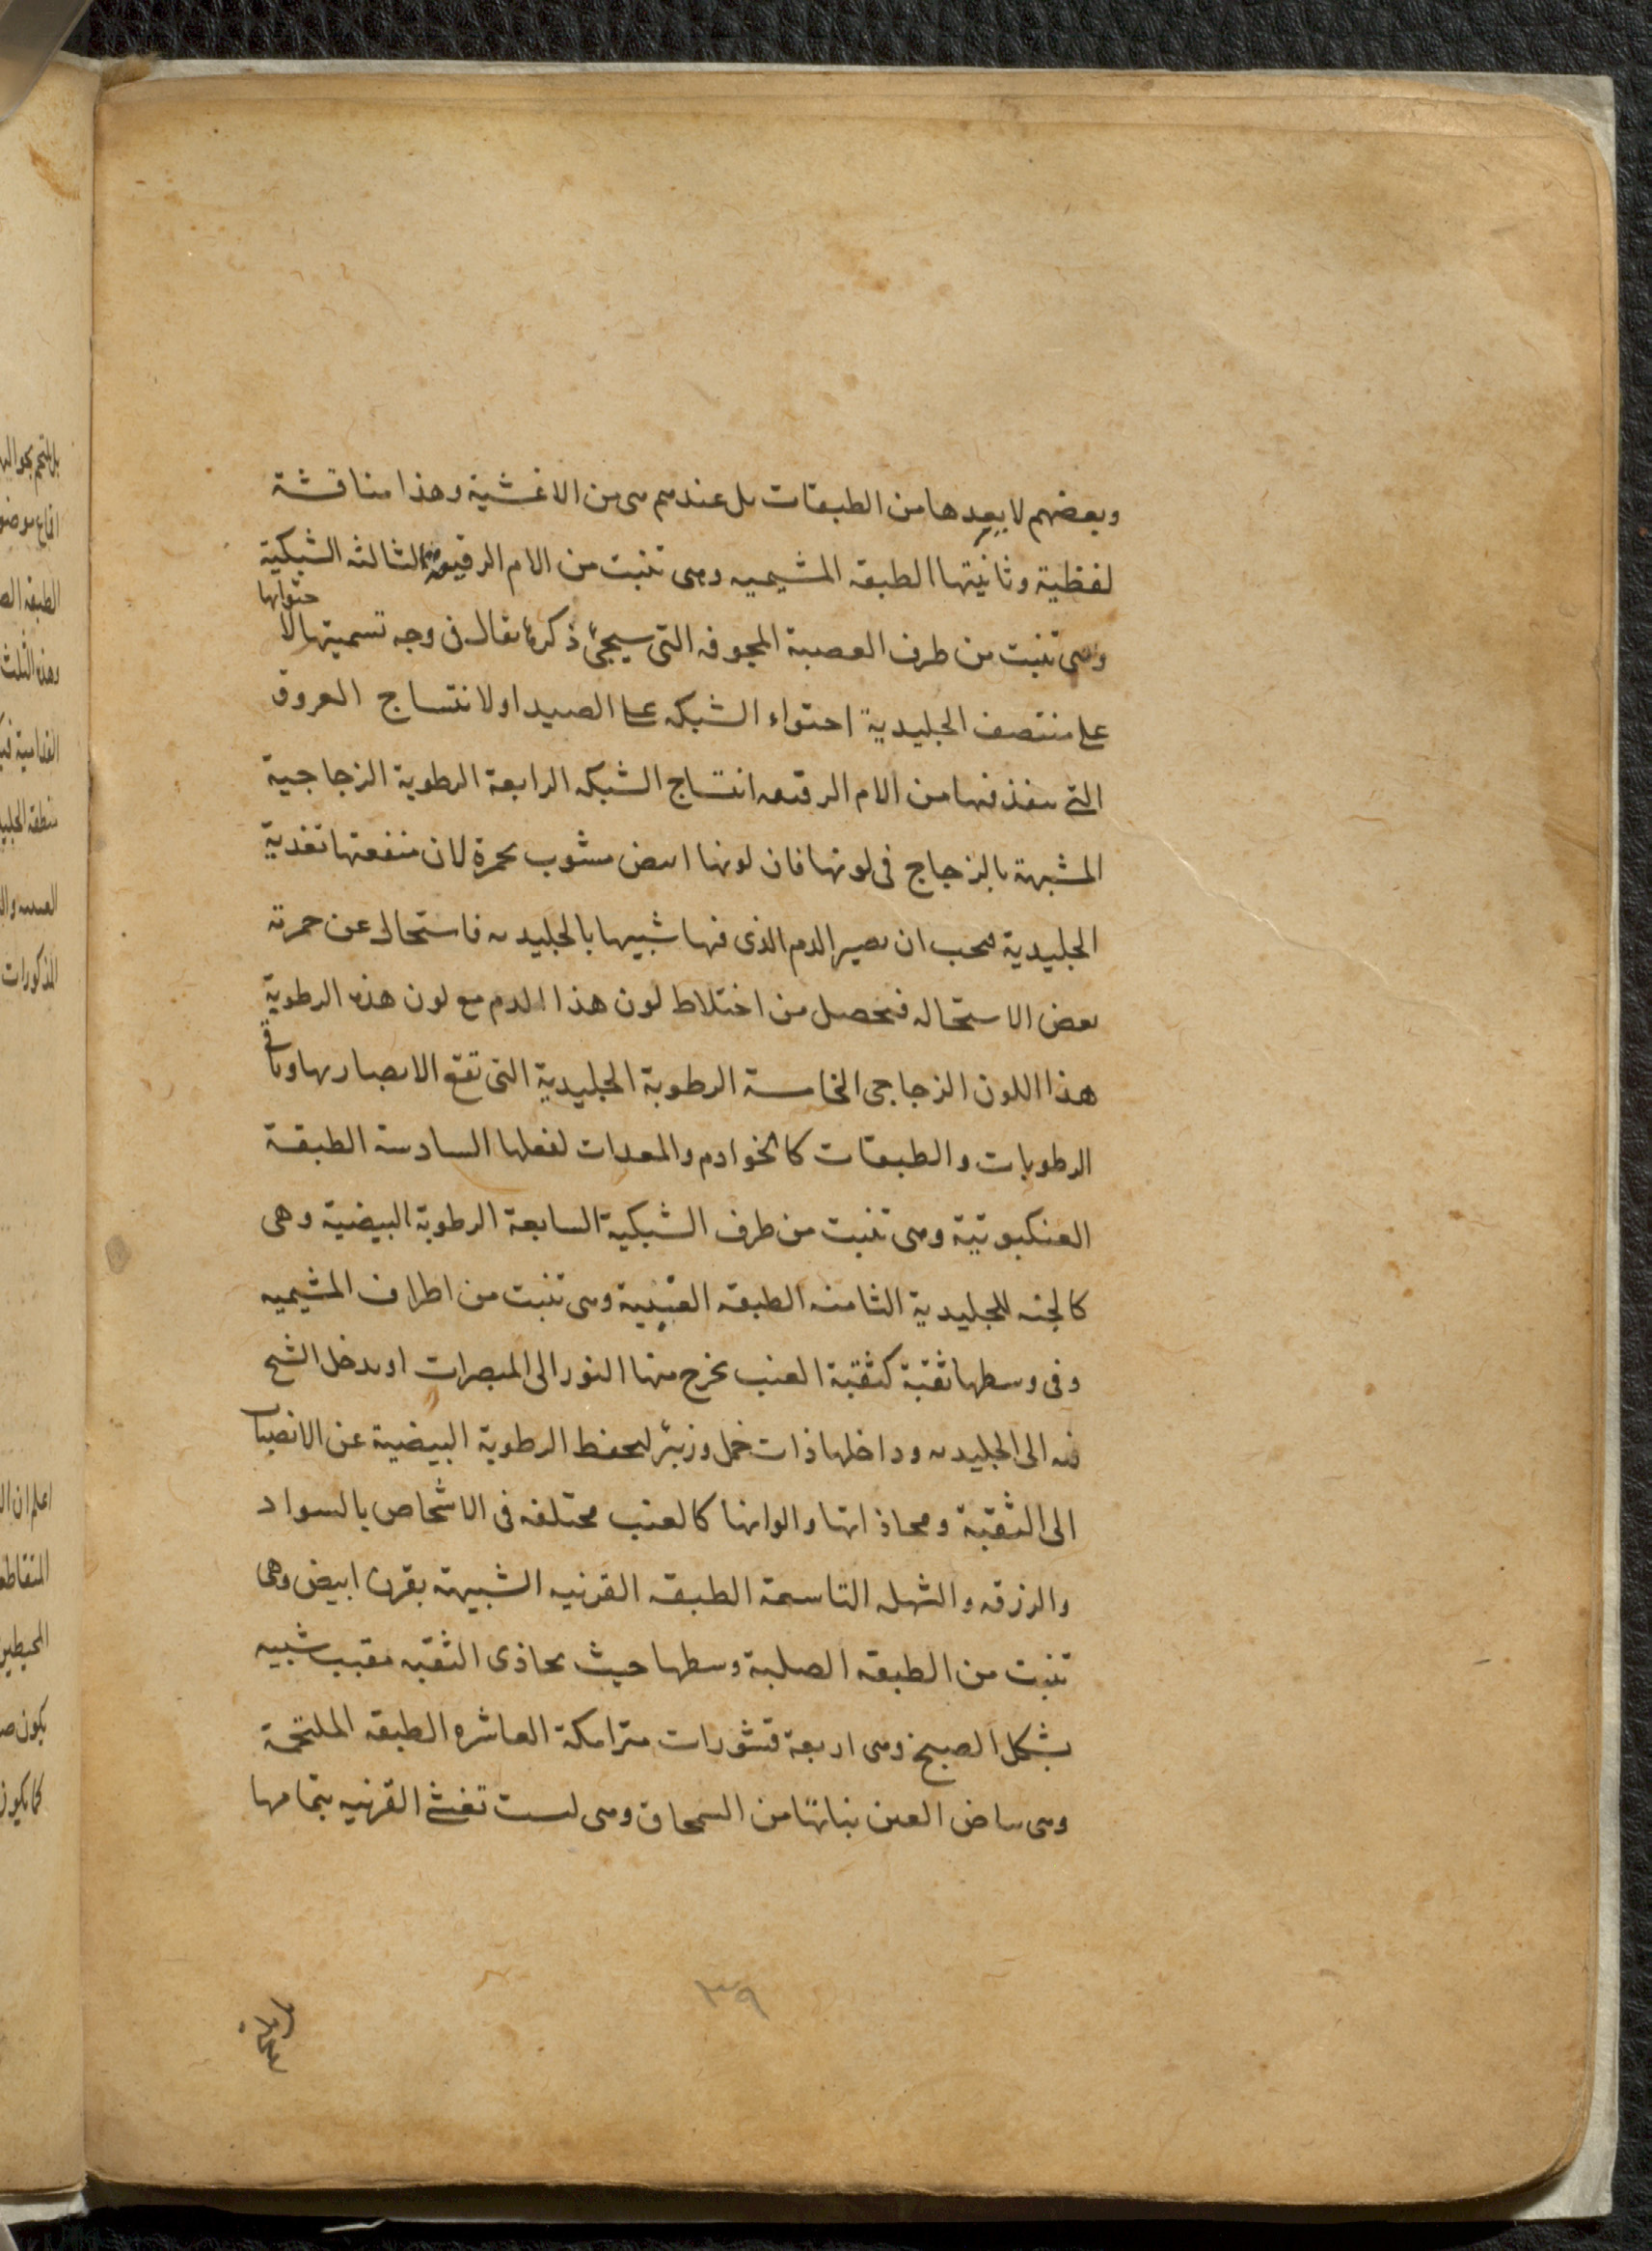 وبعضهم لا يعدها من الطبقات بل عندهم هى من الاغشية وهذا مناقشة
لفظية وثانيتها الطبقه المشيميه وهى تنبت من الام الرقيقه الثالثه الشبكية
وهى تنبت من طرف العصبة المجوفه التى سيجئ ذكره يقال فى وجه تسميتها لا
حتوائها
على منتصف الجليدية احتواء الشبكه على الصيد او لانتساج العروق
التى ينفذ فيها من الام الرقيقه انتساج الشبكه الرابعة الرطوبة الزجاجية
المشبهة بالزجاج فى لونها فان لونها ابيض مشوب بحمرة لان منفعتها تغذية
الجليدية فيجب ان يصير الدم الذى فيها شبيها بالجليديه فاستحال عن حمرته
بعض الاستحاله فيحصل من اختلاط لون هذا الدم مع لون هذه الرطوبة
هذا اللون الزجاجى الخامسة الرطوبة الجليدية التى تقع الابصار بها وباقى
الرطوبات والطبقات كالخوادم والمعدات لفعلها السادسة الطبقة
العنكبوتية وهى تنبت من طرف الشبكية السابعة الرطوبة البيضية وهى
كالجنه للجليدية الثامنه الطبقه العنبية وهى تنبت من اطراف المشيميه
وفى وسطها ثقبة كثقبة العنب يخرج منها النور الى المبصرات او يدخل الشبح
فيه الى الجليديه وداخلها ذات خمل وزبئر ليحفظ الرطوبة البيضية عن الانصباب
الى الثقبة ومحاذاتها والوانها كالعنب مختلفه فى الاشخاص بالسواد
والزرقه والشهله التاسعة الطبقه القرنيه الشبيهة بقرن ابيض وهى
تنبت من الطبقه الصلبة وسطها حيث يحاذى الثقبه مقبب شبيه
بشكل الصبح وهى اربعة قشورات متراكمة العاشره الطبقه الملتحمة
وهى بياض العين نباتها من السمحاق وهى ليست تغشى القرنيه بتمامها
٣٩